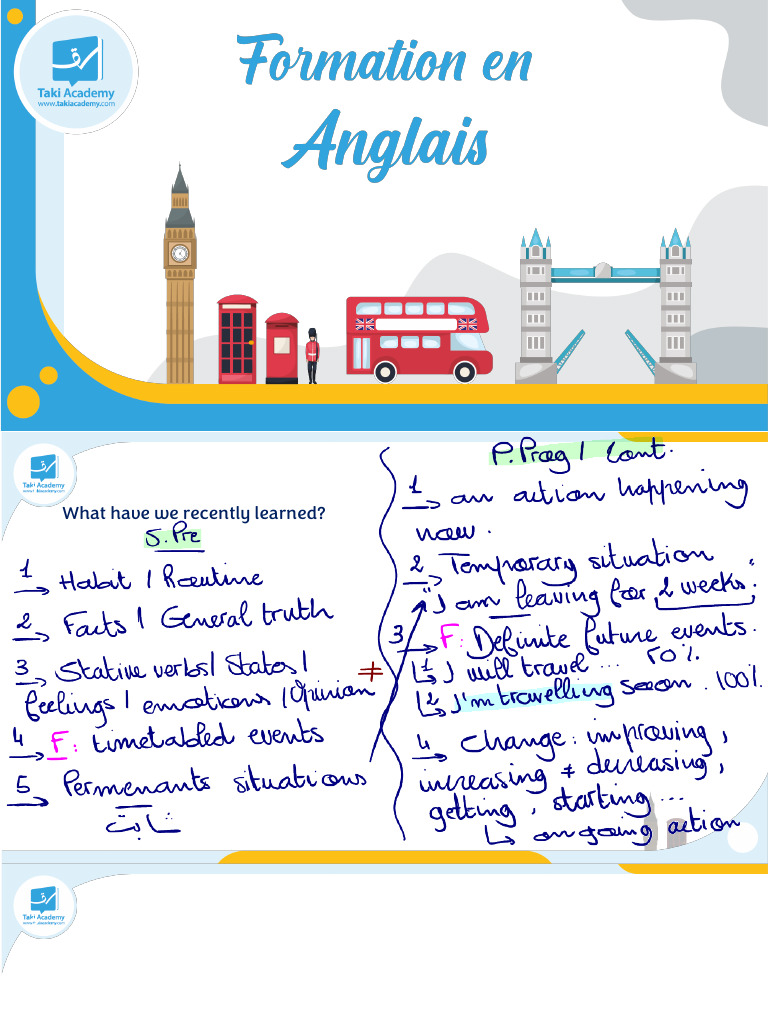 Taki Academy
www.takiacademy.com
Formation en
Anglais
Taki Academy
What have we recently learned?
S.Pre
1 → Habit / Routine
2 → Facts / General truth
3 → Stative verbs / States /
feelings / emotions / Opinion
4 → F: timetabled events
5 → Permenants situations
ثابت
≠
P.Prog / Cont.
1 → an action happening
now.
2 → Temporary situation
"I am leaving for 2 weeks."
3 → F: Definite future events.
1 I will travel ... 50%
2 I'm travelling soon. 100%
4 → Change: improving,
increasing ≠ decreasing,
getting, starting ...
↳ on going action
Taki Academy